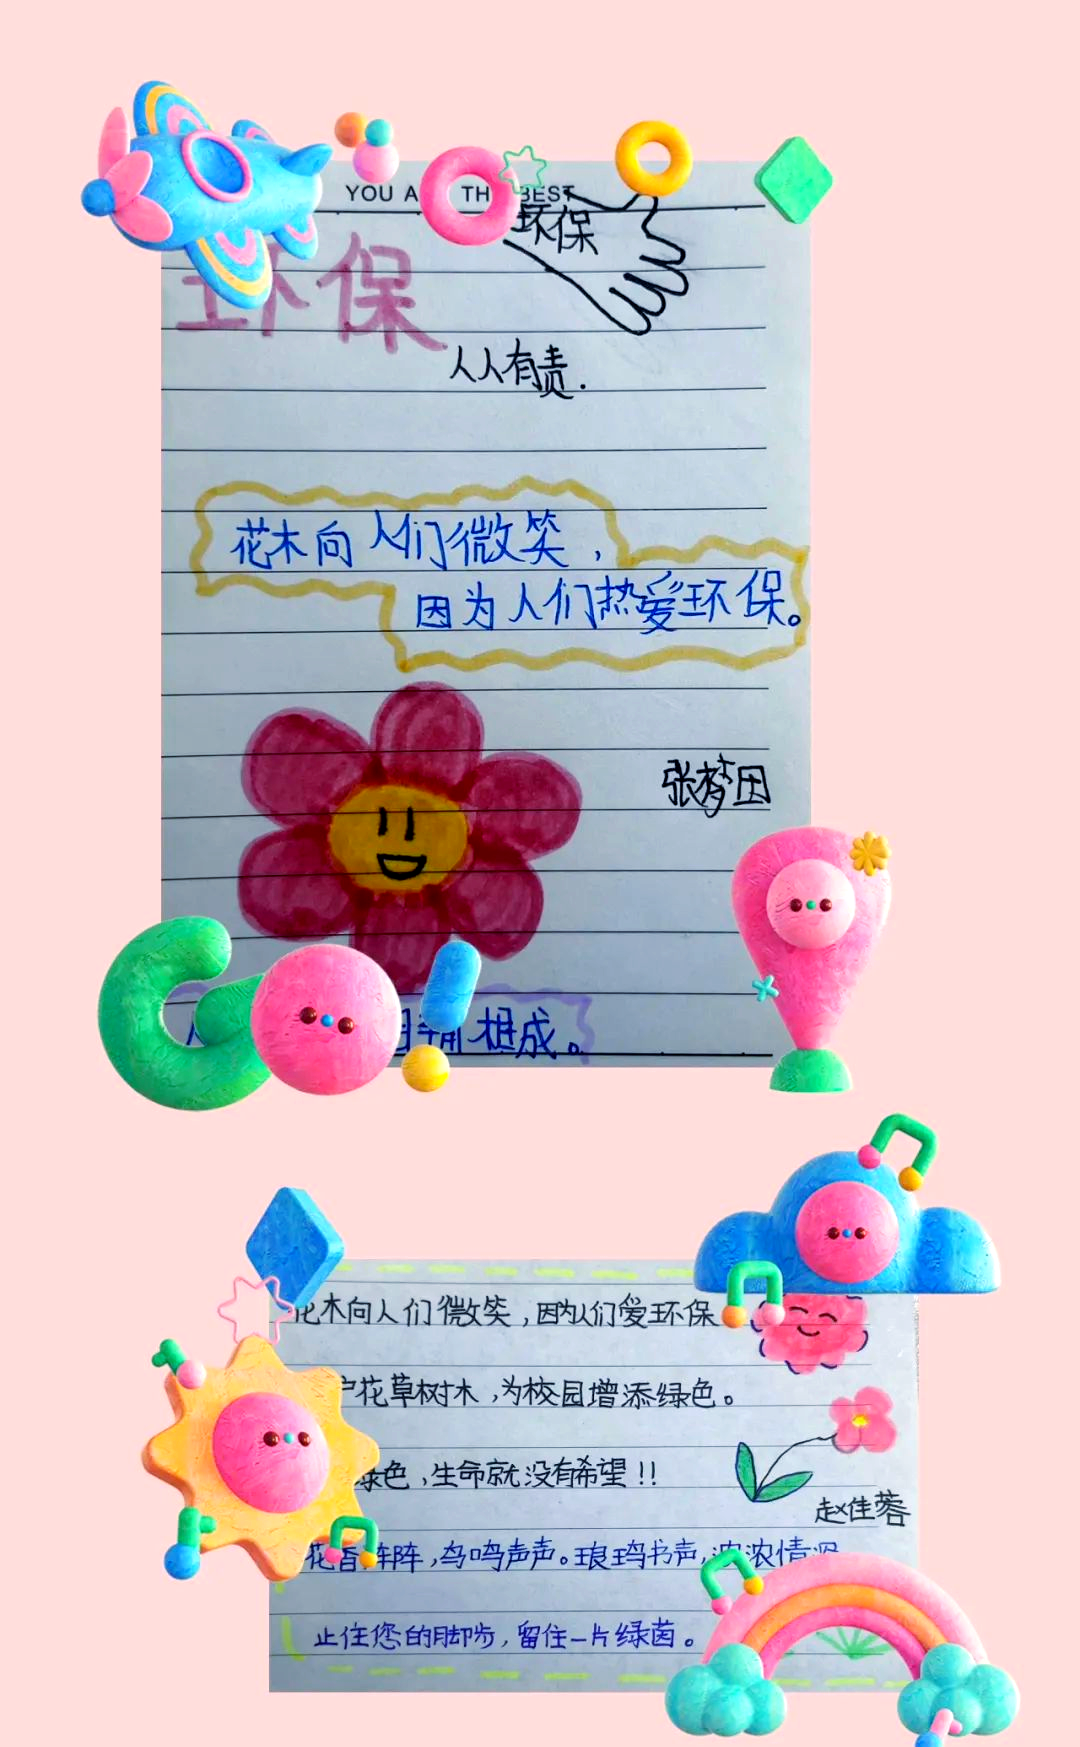 YOU A TH BEST
环保
环保
人人有责.
花木向人们微笑，
因为人们热爱环保。
张梦田
相成。
花木向人们微笑，因为人们爱环保
护花草树木，为校园增添绿色。
绿色，生命就没有希望！！
赵佳蓉
花香阵阵，鸟鸣声声。琅玛书声，浓浓情深
止住您的脚步，留住一片绿茵。